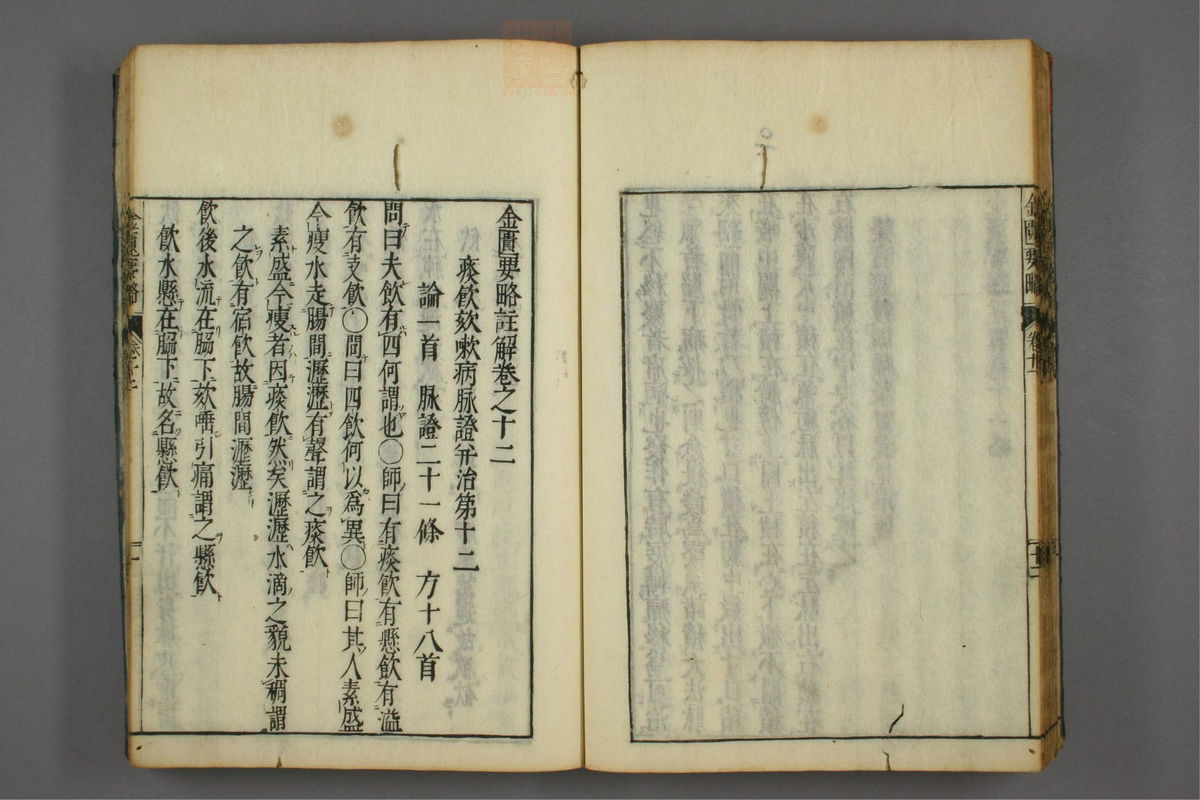 金匱要略
卷十一
金匱要略註解卷之十二
痰飲欬嗽病脉證并治第十二
論一首 脉證二十一條 方十八首
問曰夫飲有四何謂也○師曰有痰飲有懸飲有溢
飲有支飲○問曰四飲何以爲異○師曰其人素盛
今瘦水走腸間瀝瀝有聲謂之痰飲
素盛今瘦者因痰飲然矣瀝瀝水滴之貌未稠謂
之飲有宿飲故腸間瀝瀝
飲後水流在脇下欬唾引痛謂之懸飲
飲水懸在脇下故名懸飲
金匱要略